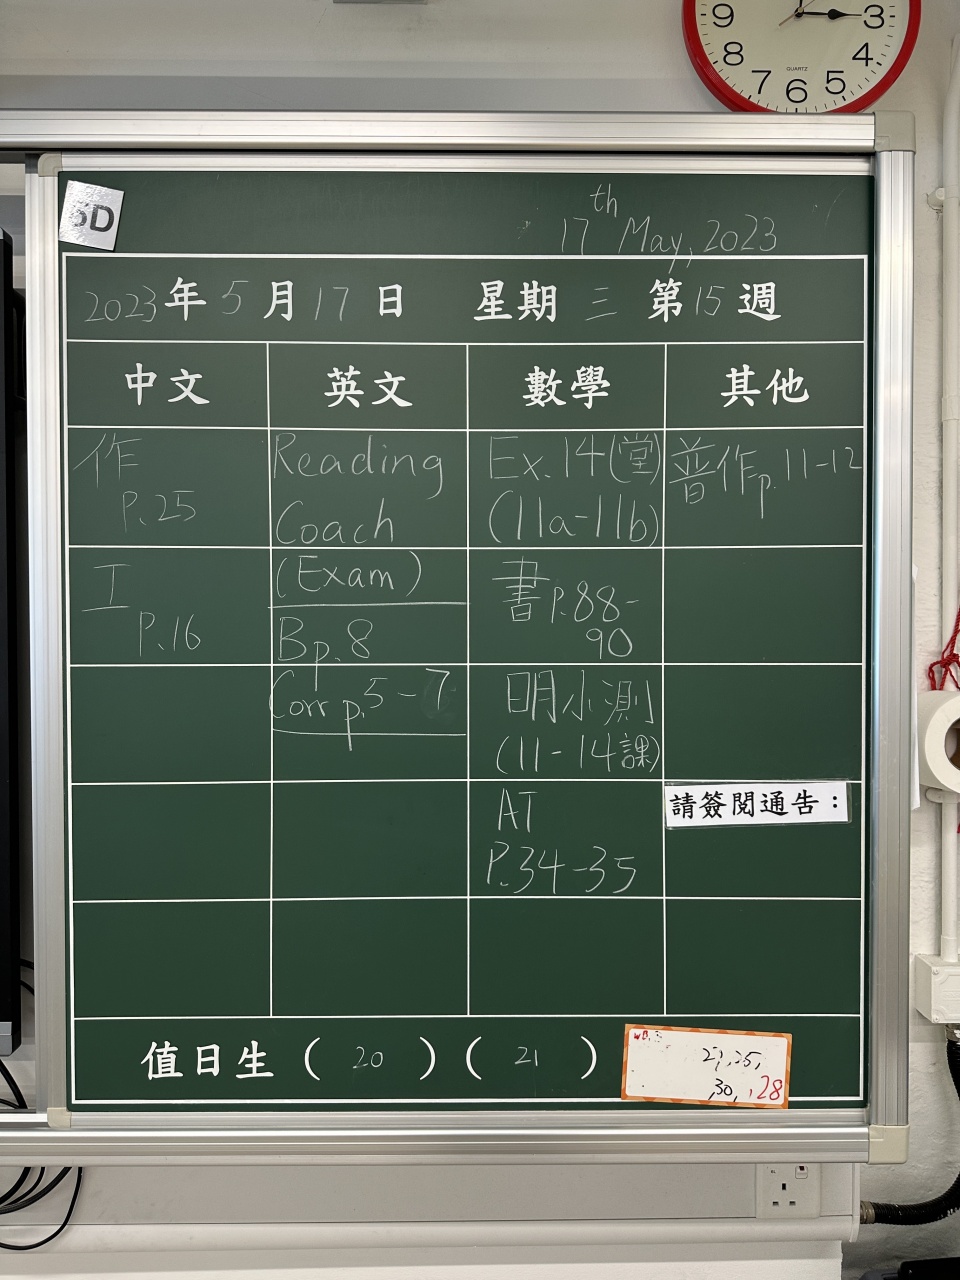 9 3
8 4
7 6 5
QUARTZ
5D
17th May, 2023
2023年5月17日 星期三 第15週
中文 英文 數學 其他
作
P.25
Reading
Coach
Ex.14(堂)
(11a-11b)
普作p.11-12
工
P.16
(Exam)
Bp.8
書P.88-
90
Corr p.5-7
明小測
(11-14課)
AT
P.34-35
請簽閱通告：
值日生(20)(21)
25,
30, 28